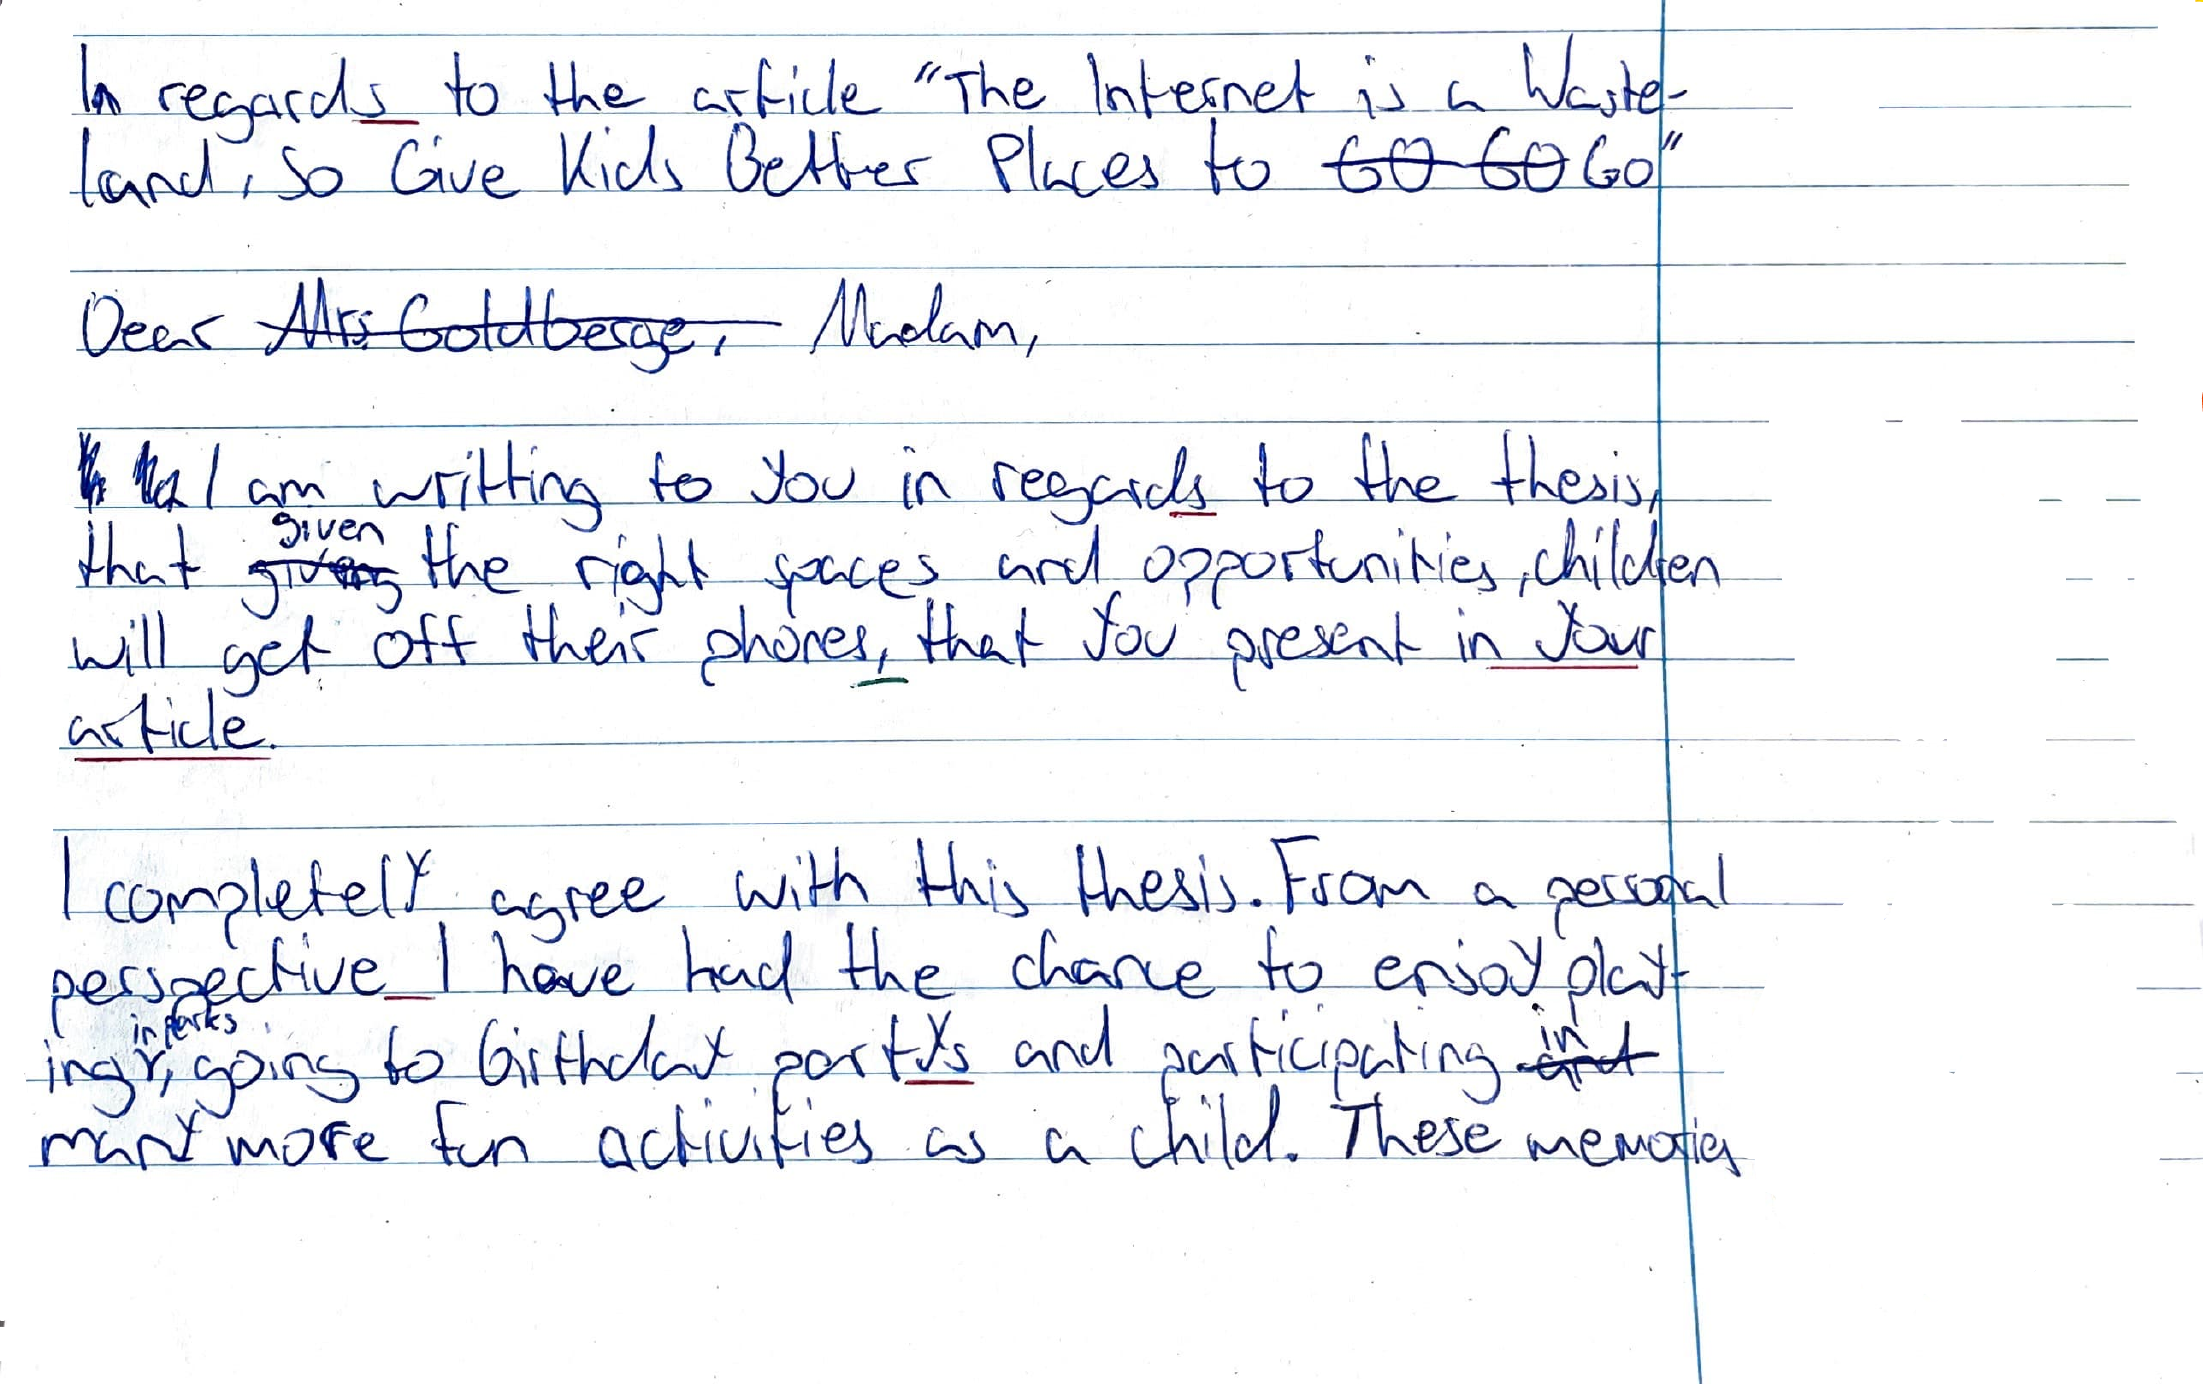 In regards to the article "The Internet is a Waste-
land, So Give Kids Better Places to GO GO Go"
Dear Mrs Goldberge, Madam,
I am writting to you in regards to the thesis,
given
that giving the right spaces and opportunities, children
will get off their phones, that you present in your
article.
I completely agree with this thesis. From a personal
perspective I have had the chance to enjoy play-
in parks
ing, going to birthday partys and participating and in
many more fun activities as a child. These memories